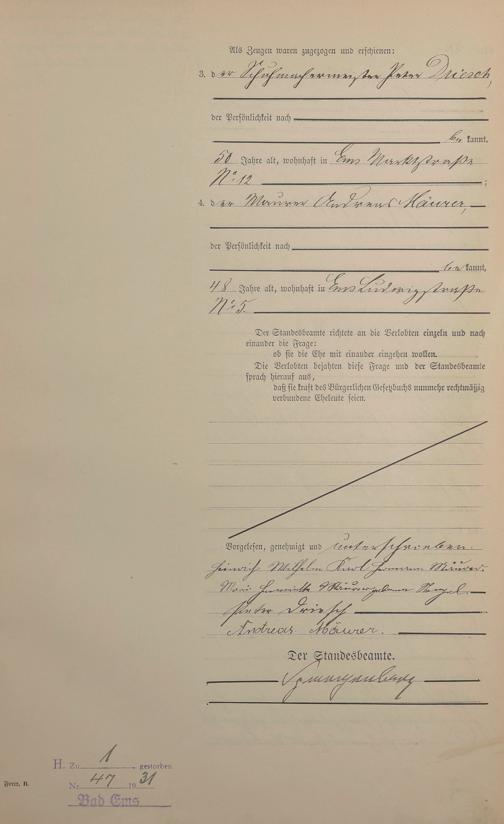 Als Zeugen waren zugezogen und erschienen:
3. der Schuhmachermeister Peter Driesch,
der Persönlichkeit nach
bekannt,
50 Jahre alt, wohnhaft in Ems Marktstraße
No 12;
4. der Maurer Andreas Mäurer,
der Persönlichkeit nach
bekannt,
48 Jahre alt, wohnhaft in Ems Ludwigstraße
No 5.
Der Standesbeamte richtete an die Verlobten einzeln und nach
einander die Frage:
ob sie die Ehe mit einander eingehen wollen.
Die Verlobten bejahten diese Frage und der Standesbeamte
sprach hierauf aus,
daß sie kraft des Bürgerlichen Gesetzbuchs nunmehr rechtmäßig
verbundene Eheleute seien.
Vorgelesen, genehmigt und unterschrieben.
Heinrich Wilhelm Karl Hermann Mäurer.
Henriette Mäurer geborene
Peter Driesch
Andreas Mäurer.
Der Standesbeamte.
H. Zu 1 gestorben
Nr. 47 1931
Bad Ems
Form. B.